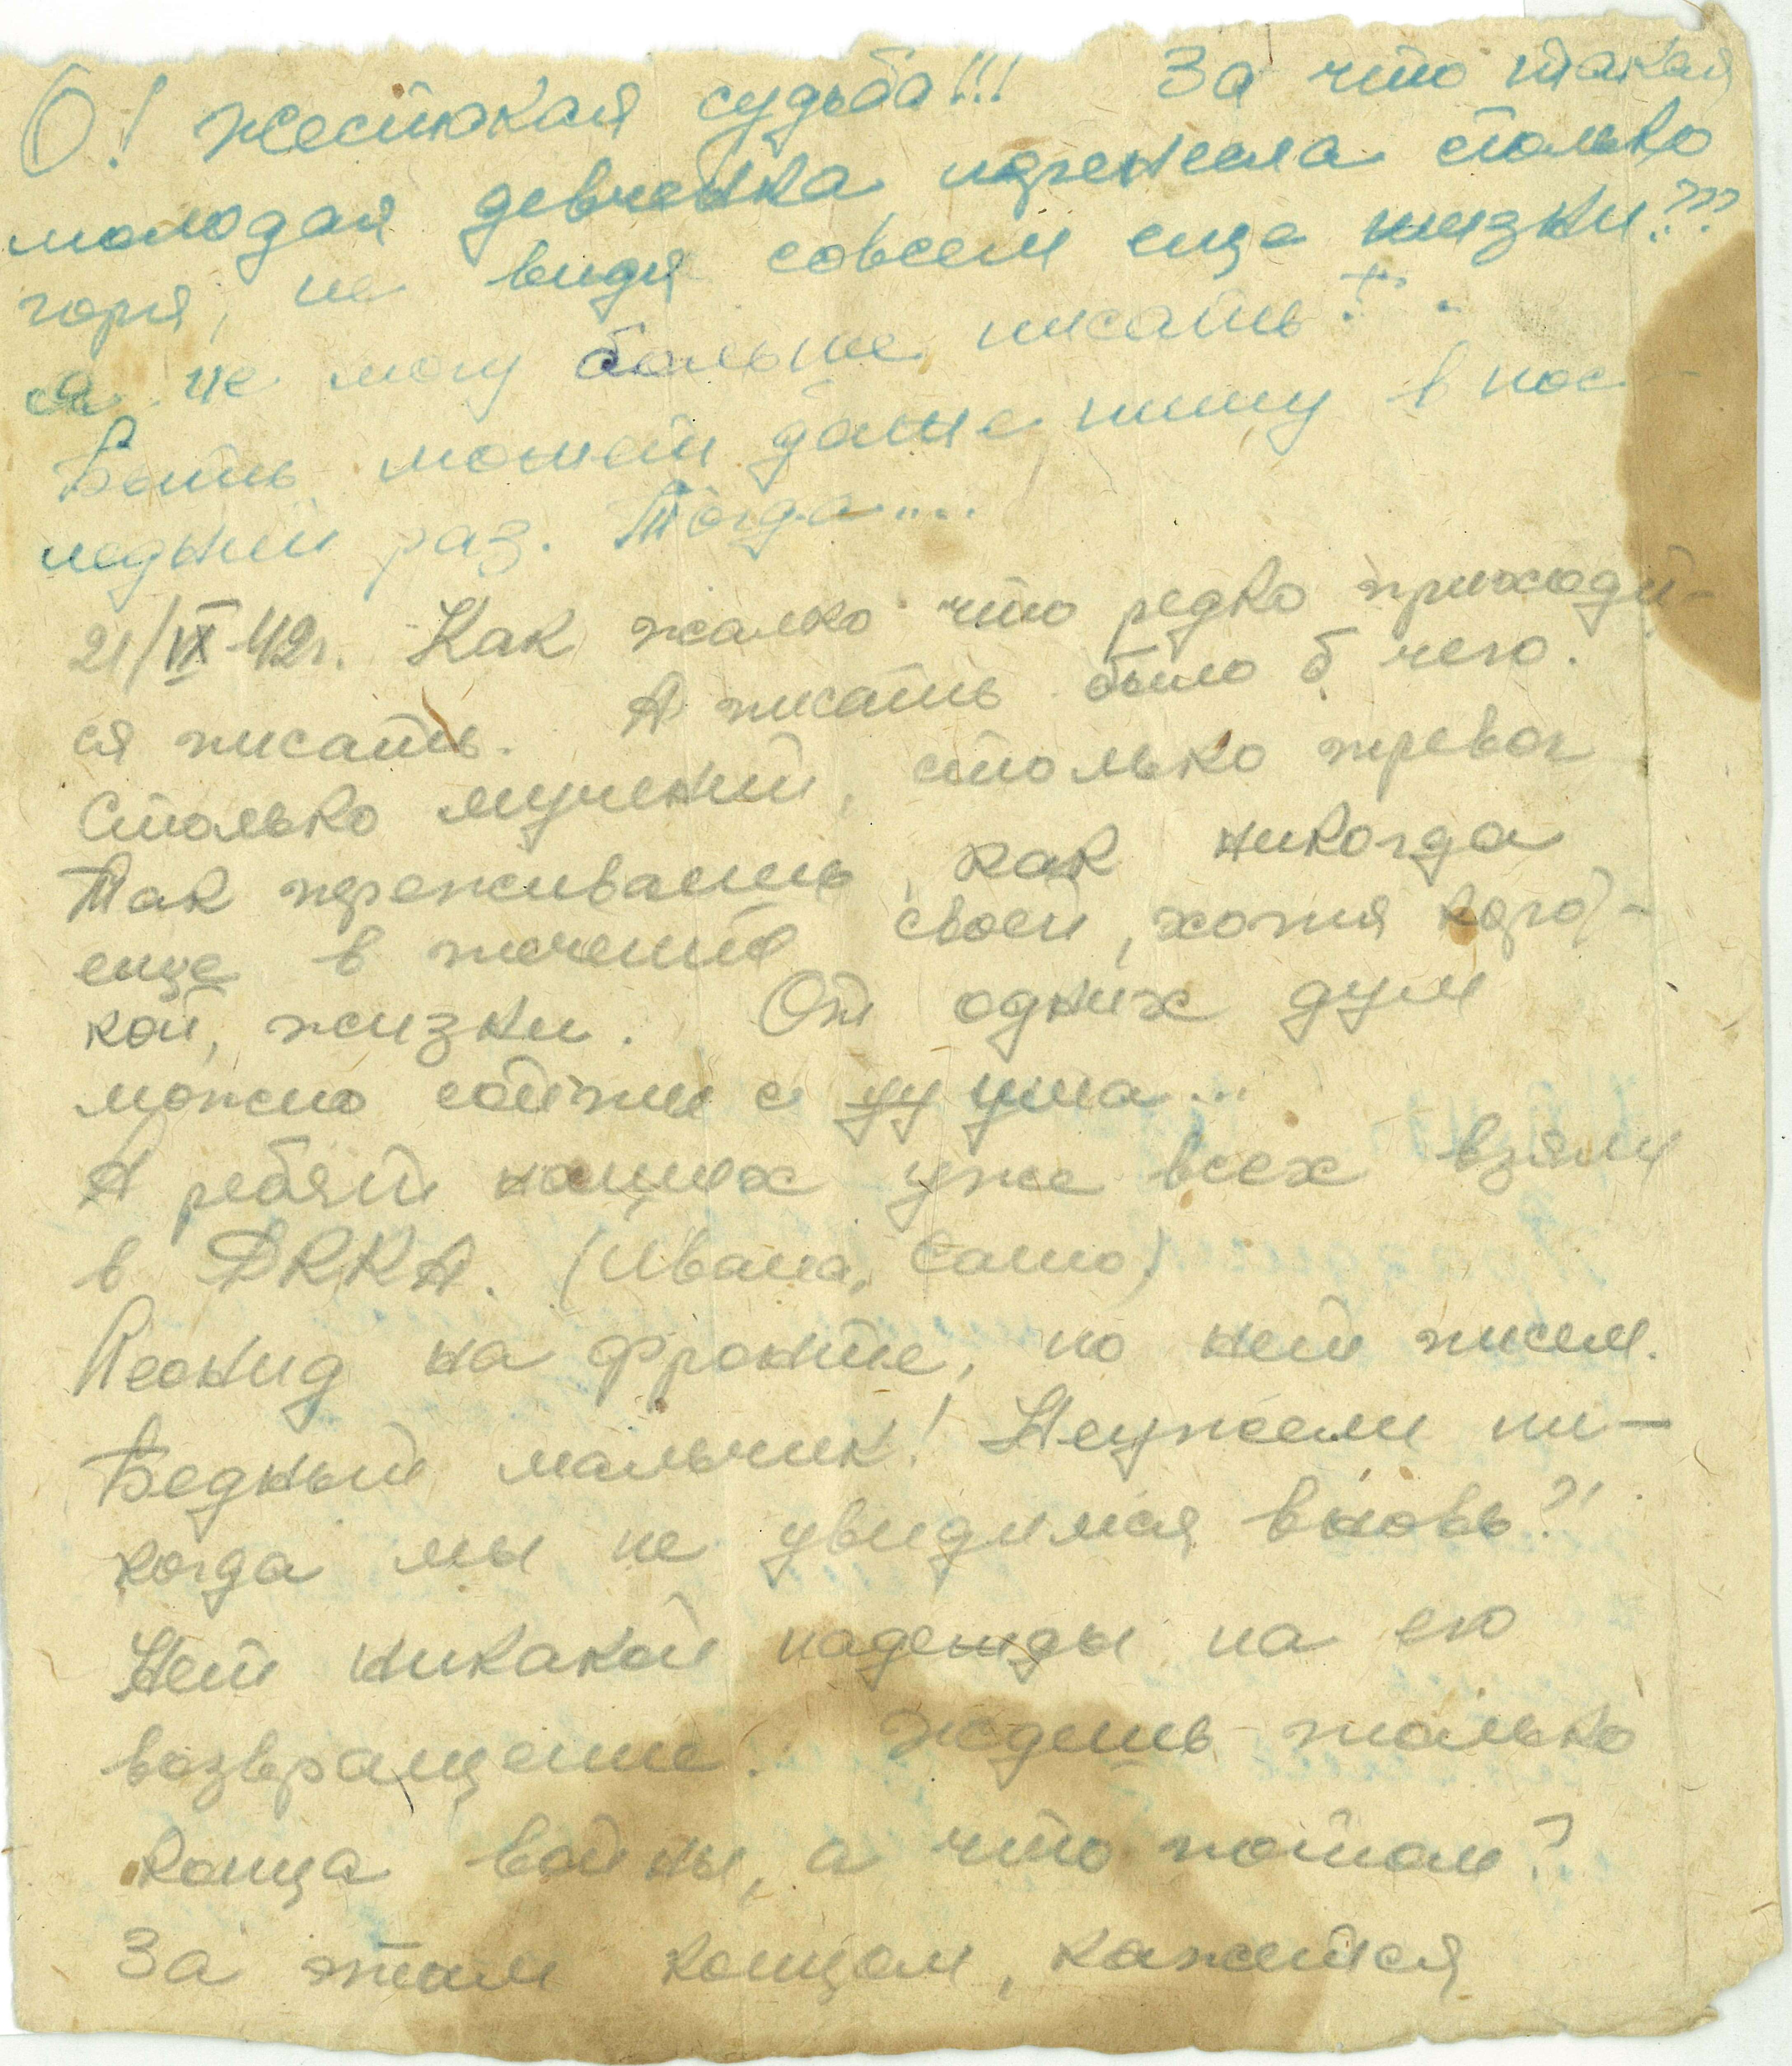 О! жестокая судьба!!! За что такая
молодая девченка перенесла столько
горя, не видя совсем еще жизни???
Я не могу больше писать!..
Быть может даже пишу в пос-
ледний раз. Тогда....
21/IX-42г. Как жалко что редко приходит-
ся писать. А писать было б чего.
Столько мучений, столько тревог
Так переживаешь, как никогда
еще в течение своей, хотя корот-
кой, жизни. От одних дум
можно сойти с уу ума...
А ребят наших уже всех взяли
в РККА. (Ивана, Сашю)
Леонид на фронте, но нет писем.
Бедный мальчик! Неужели ни-
когда мы не увидимся вновь?!
Нет никакой надежды на ею
возвращение. Ждешь только
конца войны, а что потом?
За этим концом, кажется